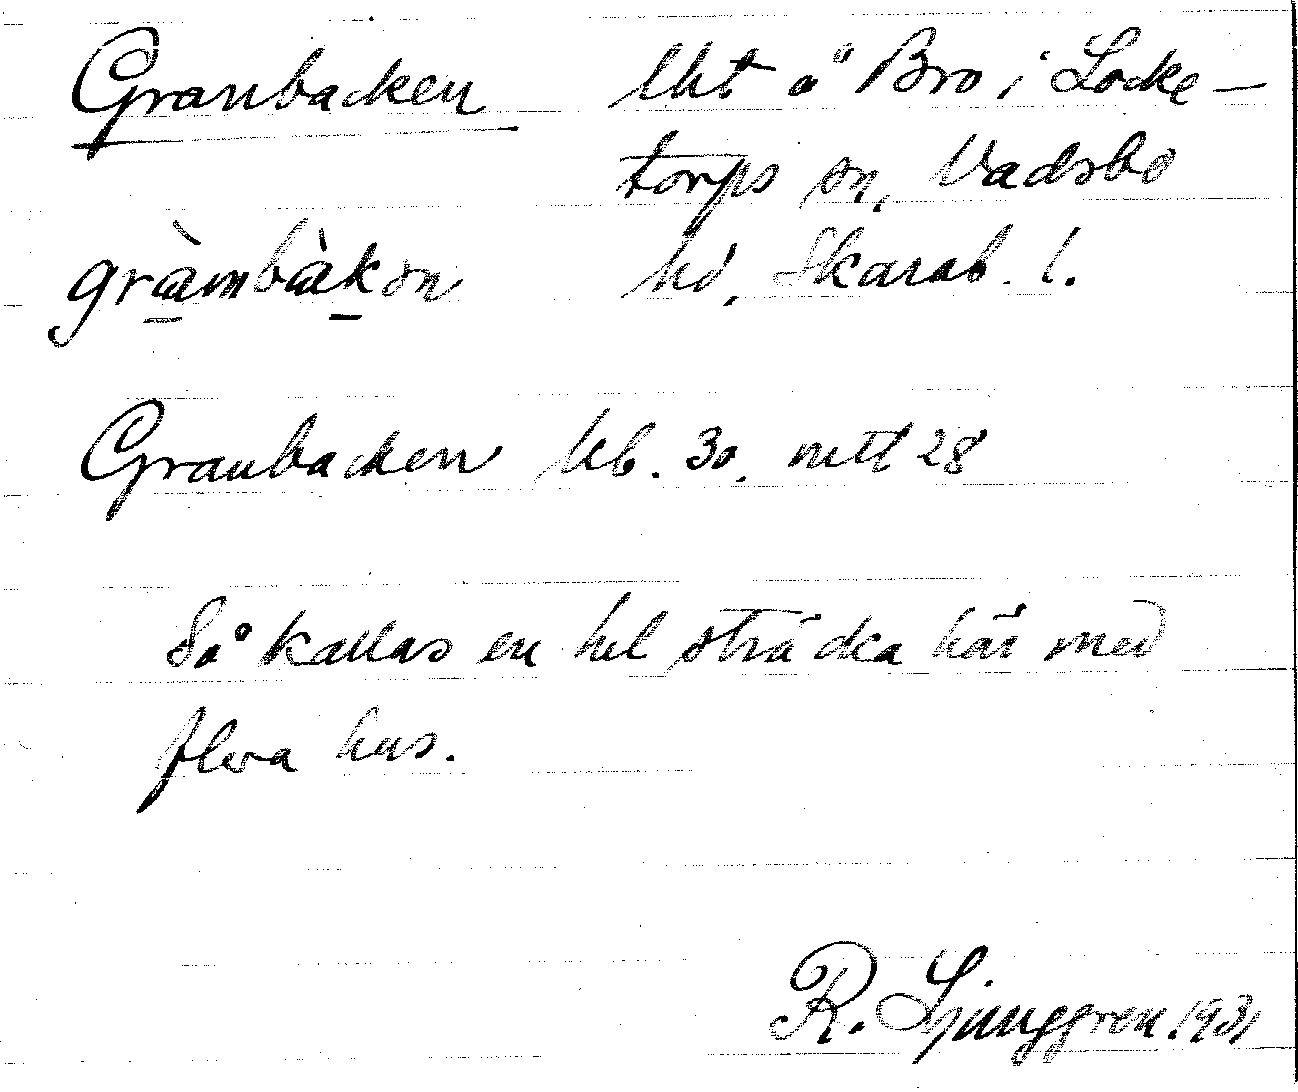 Granbacken lht å Bro i Locke-
torps sn, Vadsbo
gràmbàkən hd, Skarab. l.
Granbacken kb. 30, mtl 28
Så kallas en hel sträcka här med
flera hus.
R. Ljunggren. 1931